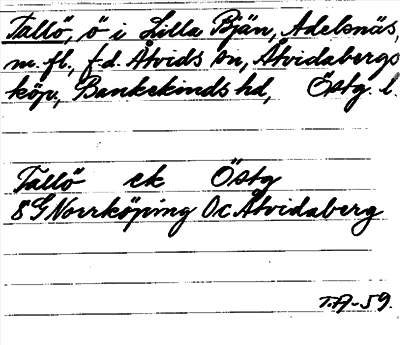 Tallö, ö i Lilla Bjän, Adelsnäs,
m.fl., f.d. Åtvids sn, Åtvidabergs
köp, Bankekinds hd, Östg. l.
Tallö ek Östg
8G Norrköping 0c Åtvidaberg
T.A-59.